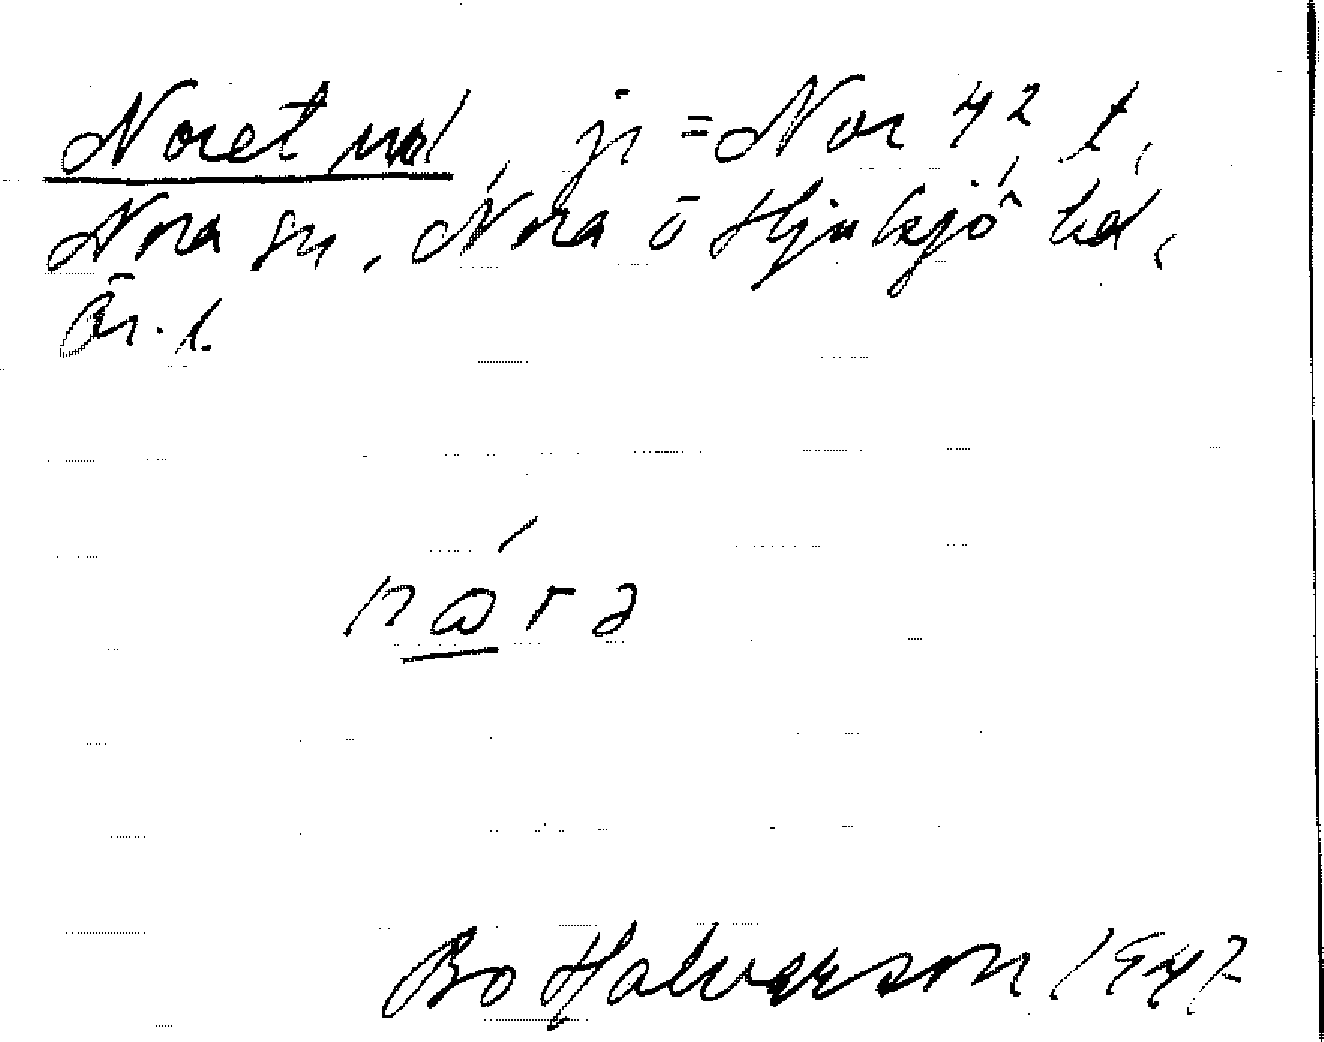 Noret, jr = Nor 4² t,
Nora sn, Nora o Hjulsjö hd,
Ör. l.
nóra
Bo Halvarson 1947